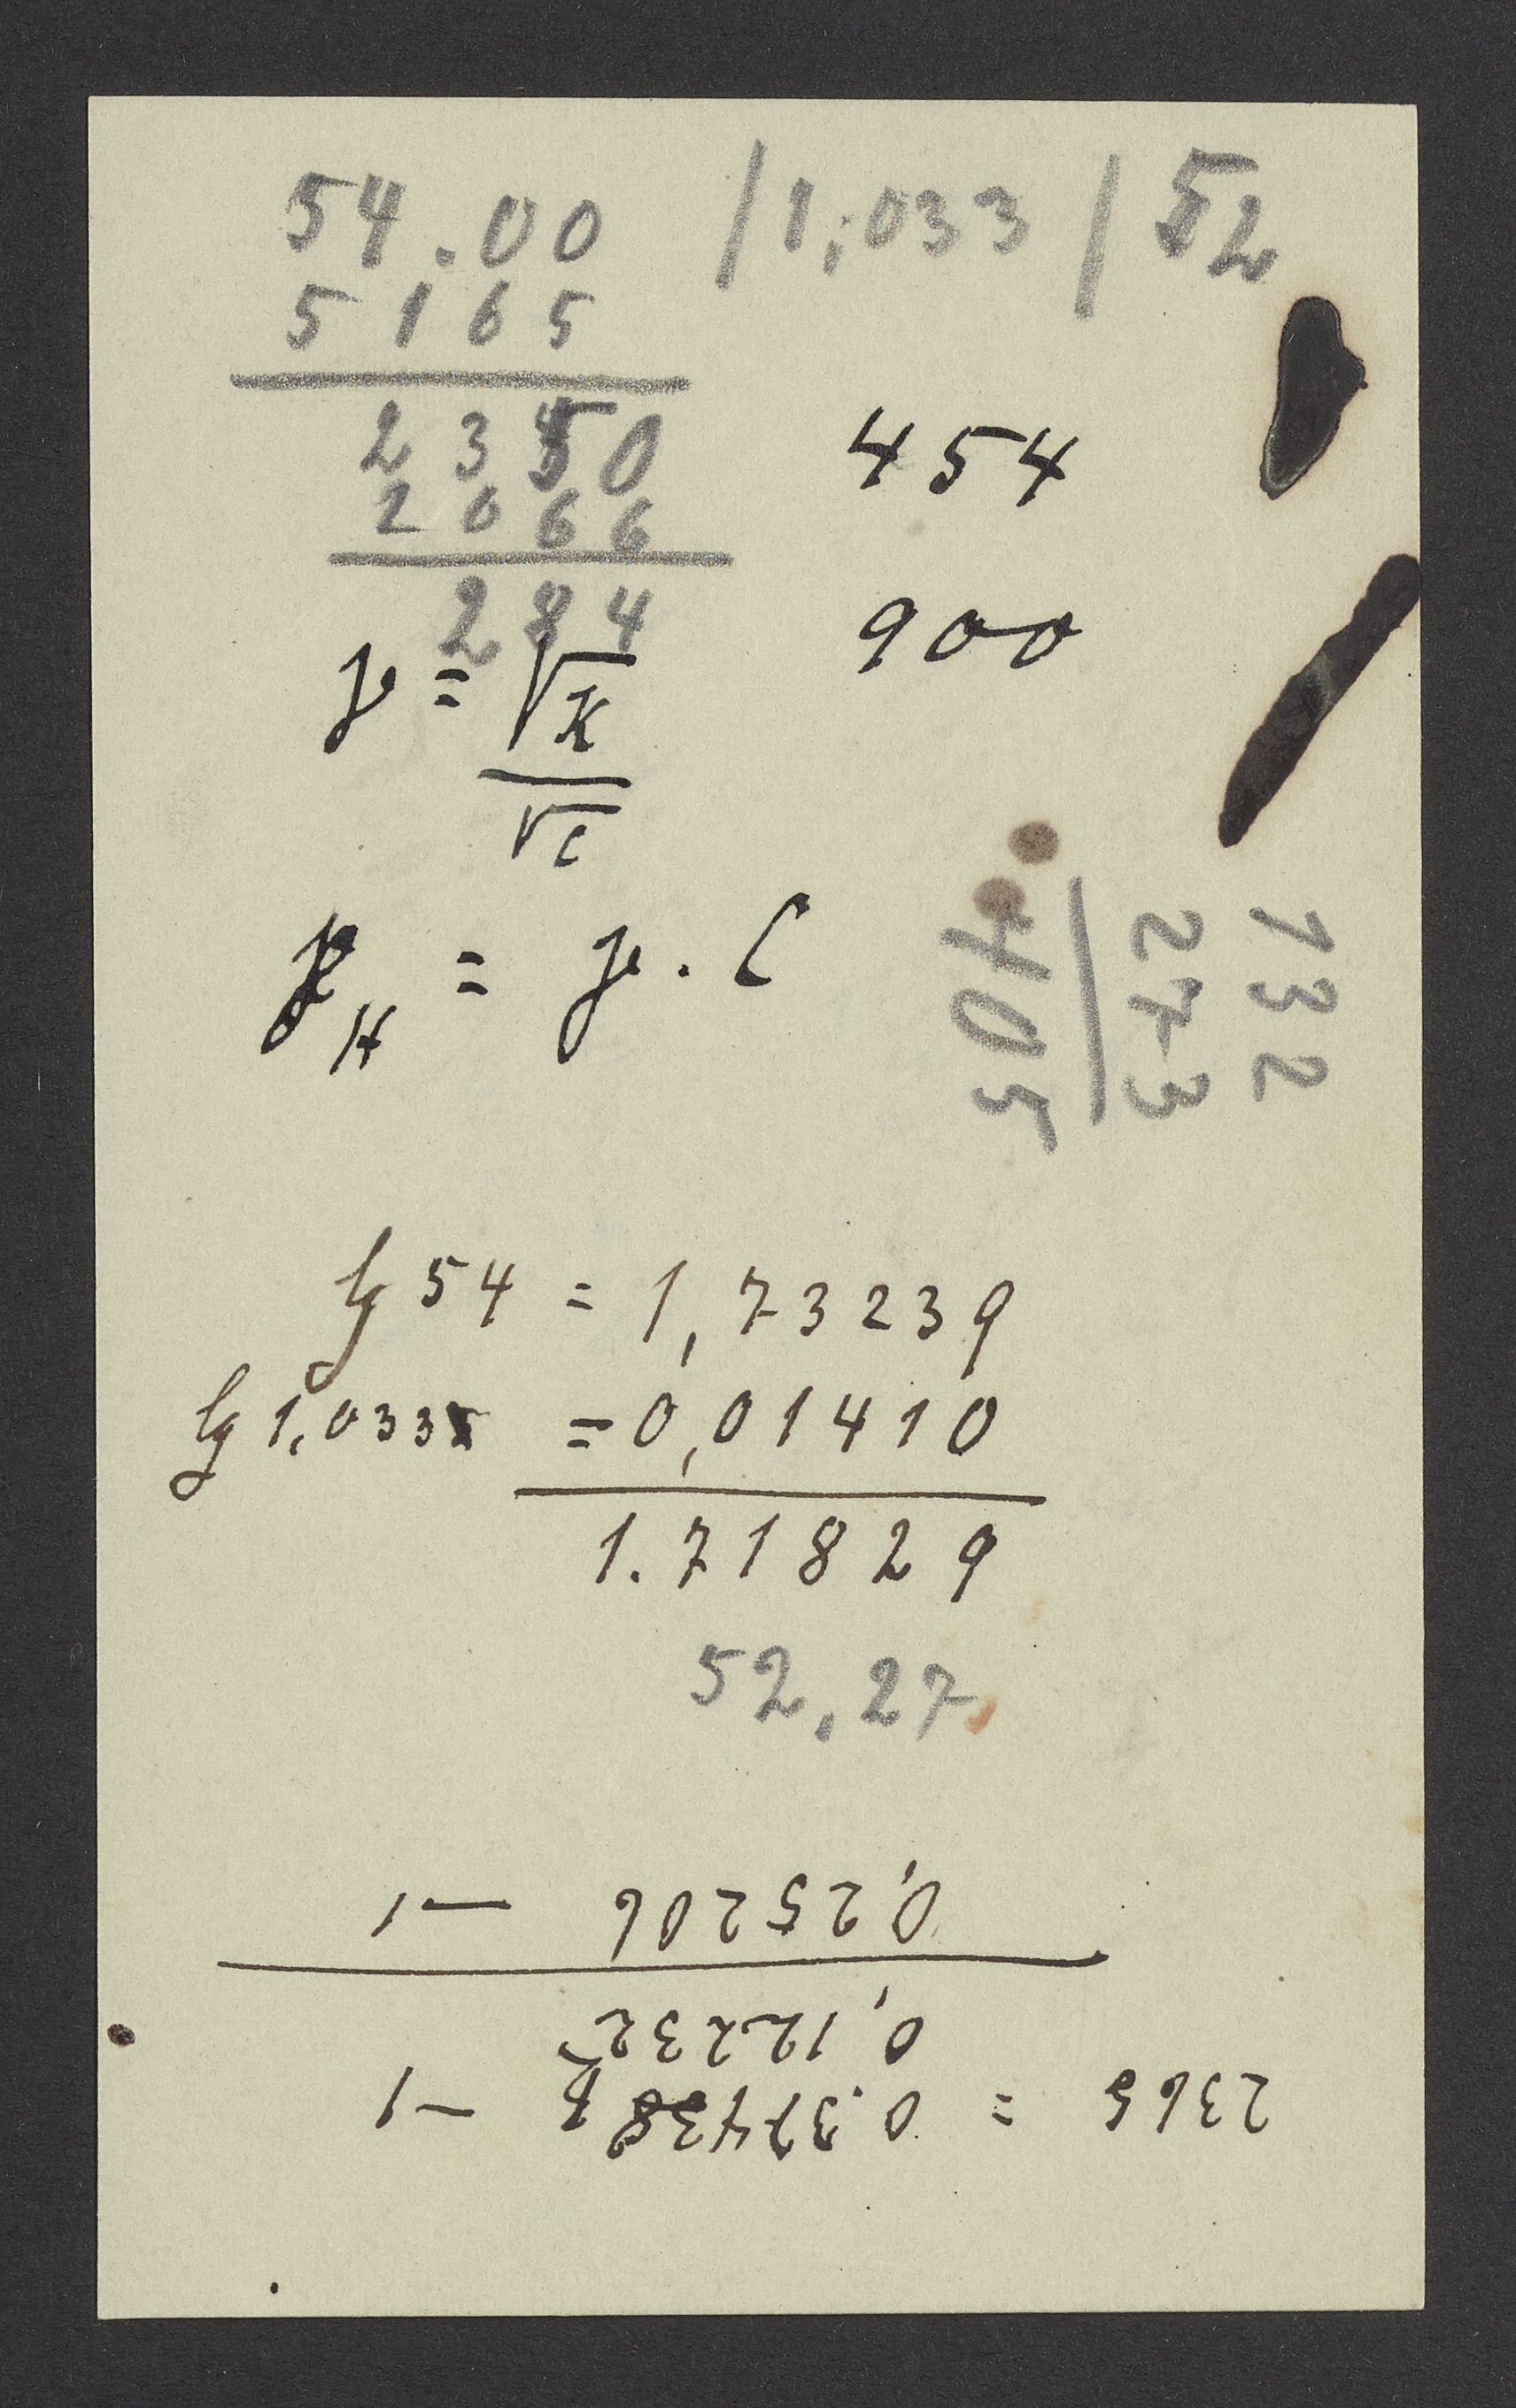 54.00 / 1,033 / 52
5165
2350
2066
284
454
900
γ = √K
√c
H = γ . C
132
273
405
lg 54 = 1,73239
lg 1,033 = 0,01410
1.71829
52,27
2365 = 0.3743 – 1
0,12232
0,25206 – 1